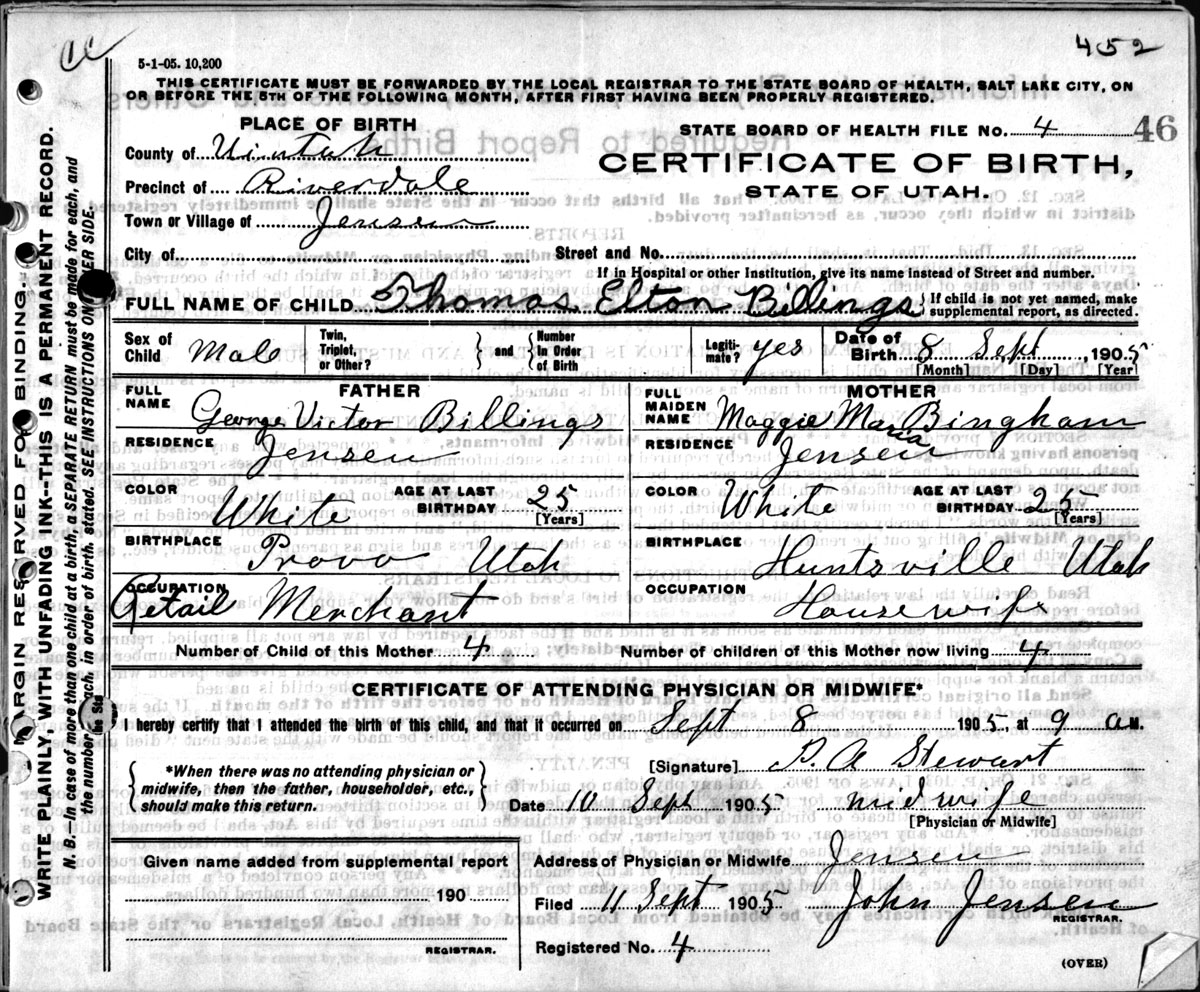 452
5-1-05. 10,200
THIS CERTIFICATE MUST BE FORWARDED BY THE LOCAL REGISTRAR TO THE STATE BOARD OF HEALTH, SALT LAKE CITY, ON
OR BEFORE THE 5TH OF THE FOLLOWING MONTH, AFTER FIRST HAVING BEEN PROPERLY REGISTERED.
PLACE OF BIRTH
STATE BOARD OF HEALTH FILE No. 4 46
County of Uintah
CERTIFICATE OF BIRTH,
Precinct of Riverdale
STATE OF UTAH.
Town or Village of Jensen
City of
Street and No.
If in Hospital or other Institution, give its name instead of Street and number.
FULL NAME OF CHILD Thomas Elton Billings } If child is not yet named, make supplemental report, as directed.
Sex of Child Male Twin, Triplet, or Other? } and { Number in Order of Birth Legiti- mate? yes Date of Birth 8 Sept, 1905
[Month] [Day] [Year]
FATHER
MOTHER
FULL NAME George Victor Billings
FULL MAIDEN NAME Maggie Maria Bingham
RESIDENCE Jensen
RESIDENCE Jensen
COLOR White AGE AT LAST BIRTHDAY 25 [Years]
COLOR White AGE AT LAST BIRTHDAY 25 [Years]
BIRTHPLACE Provo Utah
BIRTHPLACE Huntsville Utah
OCCUPATION Retail Merchant
OCCUPATION Housewife
Number of Child of this Mother 4
Number of children of this Mother now living 4
CERTIFICATE OF ATTENDING PHYSICIAN OR MIDWIFE*
I hereby certify that I attended the birth of this child, and that it occurred on Sept 8 1905 at 9 a M.
{ *When there was no attending physician or
midwife, then the father, householder, etc.,
should make this return. }
[Signature] P. A Stewart
Date 10 Sept 1905 midwife
[Physician or Midwife]
Given name added from supplemental report
190
REGISTRAR.
Address of Physician or Midwife Jensen
Filed 11 Sept 1905 John Jensen
REGISTRAR.
Registered No. 4
(OVER)
MARGIN RESERVED FOR BINDING.
WRITE PLAINLY, WITH UNFADING INK--THIS IS A PERMANENT RECORD.
N. B.—In case of more than one child at a birth, a SEPARATE RETURN must be made for each, and
the number of each, in order of birth, stated. SEE INSTRUCTIONS ON OTHER SIDE.